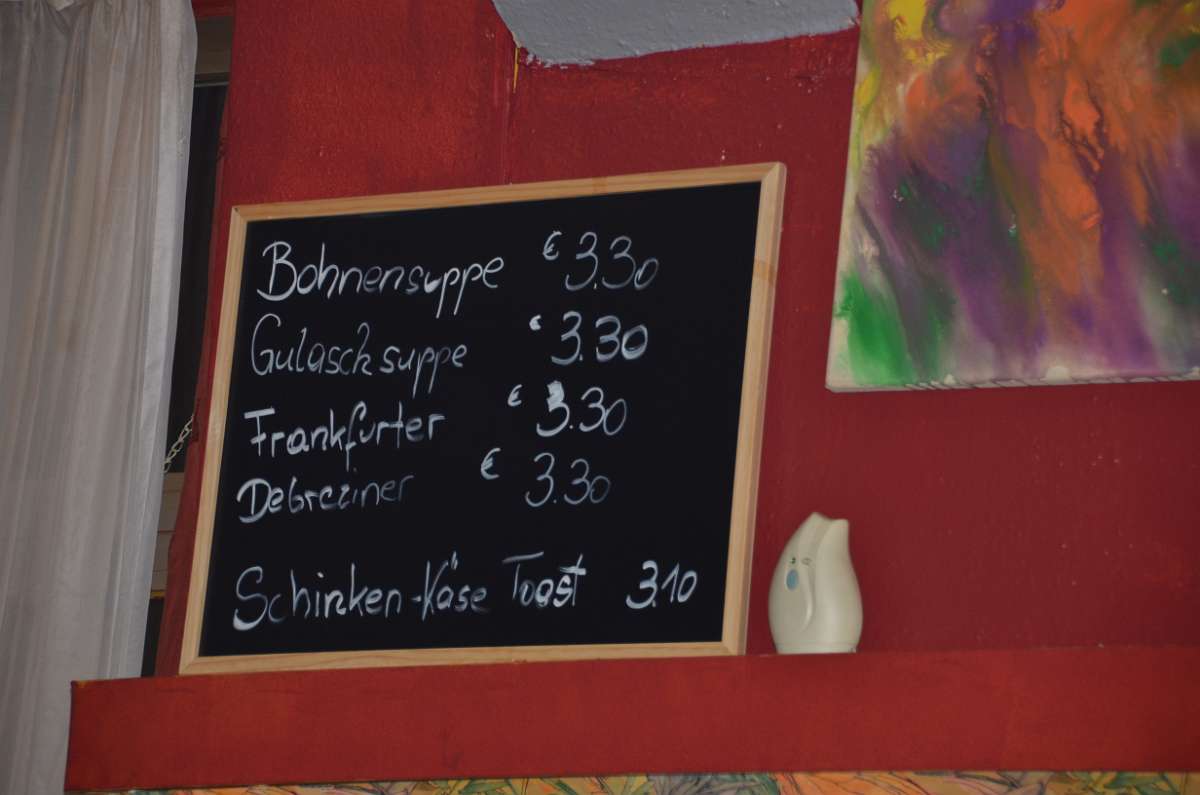 Bohnensuppe € 3.30
Gulaschsuppe € 3.30
Frankfurter € 3.30
Debreziner € 3.30
Schinken-Käse Toast 3.10